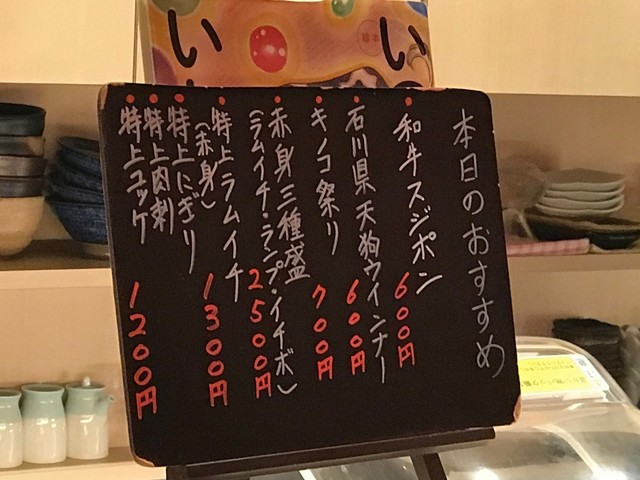 本日のおすすめ
和牛スジポン 600円
石川県天狗ウインナー 600円
キノコ祭り 700円
赤身三種盛 2500円
(ラムイチ・ランプ・イチボ)
特上ラムイチ 1300円
(赤身)
特上にぎり
特上肉刺
特上ユッケ 1200円
い
い